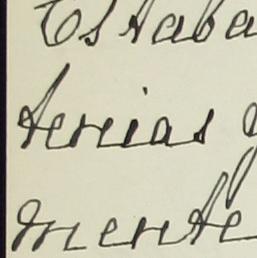 Estaba
terias y
mente